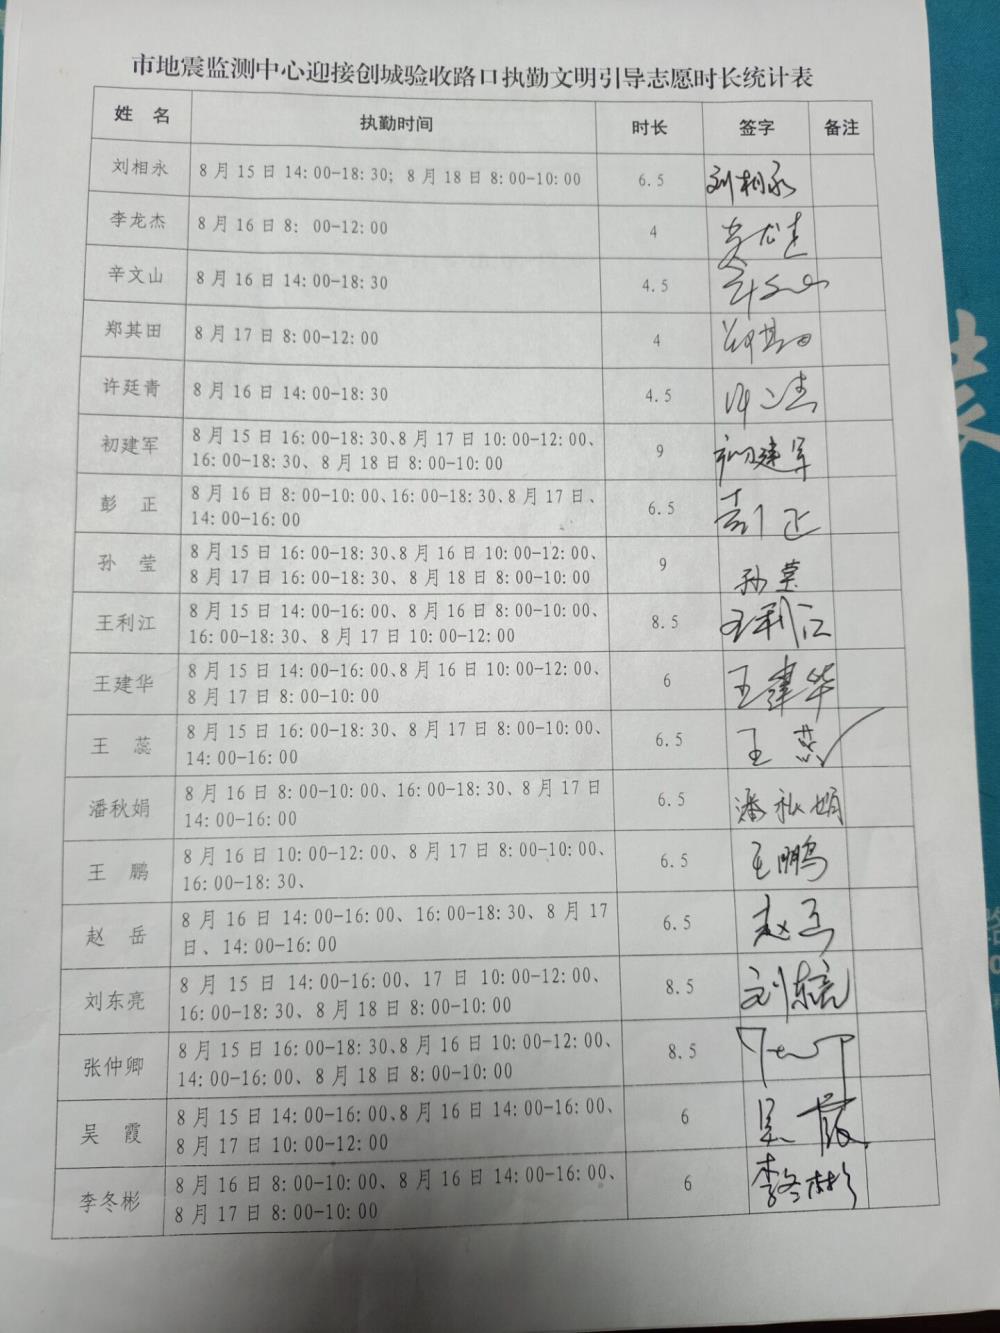 市地震监测中心迎接创城验收路口执勤文明引导志愿时长统计表
姓 名 执勤时间 时长 签字 备注
刘相永 8月15日14:00-18:30; 8月18日8:00-10:00 6.5 刘相永
李龙杰 8月16日8: 00-12:00 4 李龙杰
辛文山 8月16日14:00-18:30 4.5
郑其田 8月17日8:00-12:00 4 郑其田
许廷青 8月16日14:00-18:30 4.5
初建军 8月15日16:00-18:30、8月17日10:00-12:00、 9 初建军
16:00-18:30、8月18日8:00-10:00
彭 正 8月16日8:00-10:00、16:00-18:30、8月17日、 6.5 彭正
14:00-16:00
孙 莹 8月15日16:00-18:30、8月16日10:00-12:00、 9 孙莹
8月17日16:00-18:30、8月18日8:00-10:00
王利江 8月15日14:00-16:00、8月16日8:00-10:00、 8.5 王利江
16:00-18:30、8月17日10:00-12:00
王建华 8月15日14:00-16:00、8月16日10:00-12:00、 6 王建华
8月17日8:00-10:00
王 蕊 8月15日16:00-18:30、8月17日8:00-10:00、 6.5 王蕊
14:00-16:00
潘秋娟 8月16日8:00-10:00、16:00-18:30、8月17日 6.5 潘秋娟
14:00-16:00
王 鹏 8月16日10:00-12:00、8月17日8:00-10:00、 6.5 王鹏
16:00-18:30、
赵 岳 8月16日14:00-16:00、16:00-18:30、8月17 6.5 赵岳
日、14:00-16:00
刘东亮 8月15日14:00-16:00、17日10:00-12:00、 8.5 刘东亮
16:00-18:30、8月18日8:00-10:00
张仲卿 8月15日16:00-18:30、8月16日10:00-12:00、 8.5
14:00-16:00、8月18日8:00-10:00
吴 霞 8月15日14:00-16:00、8月16日14:00-16:00、 6 吴霞
8月17日10:00-12:00
李冬彬 8月16日8:00-10:00、8月16日14:00-16:00、 6 李冬彬
8月17日8:00-10:00